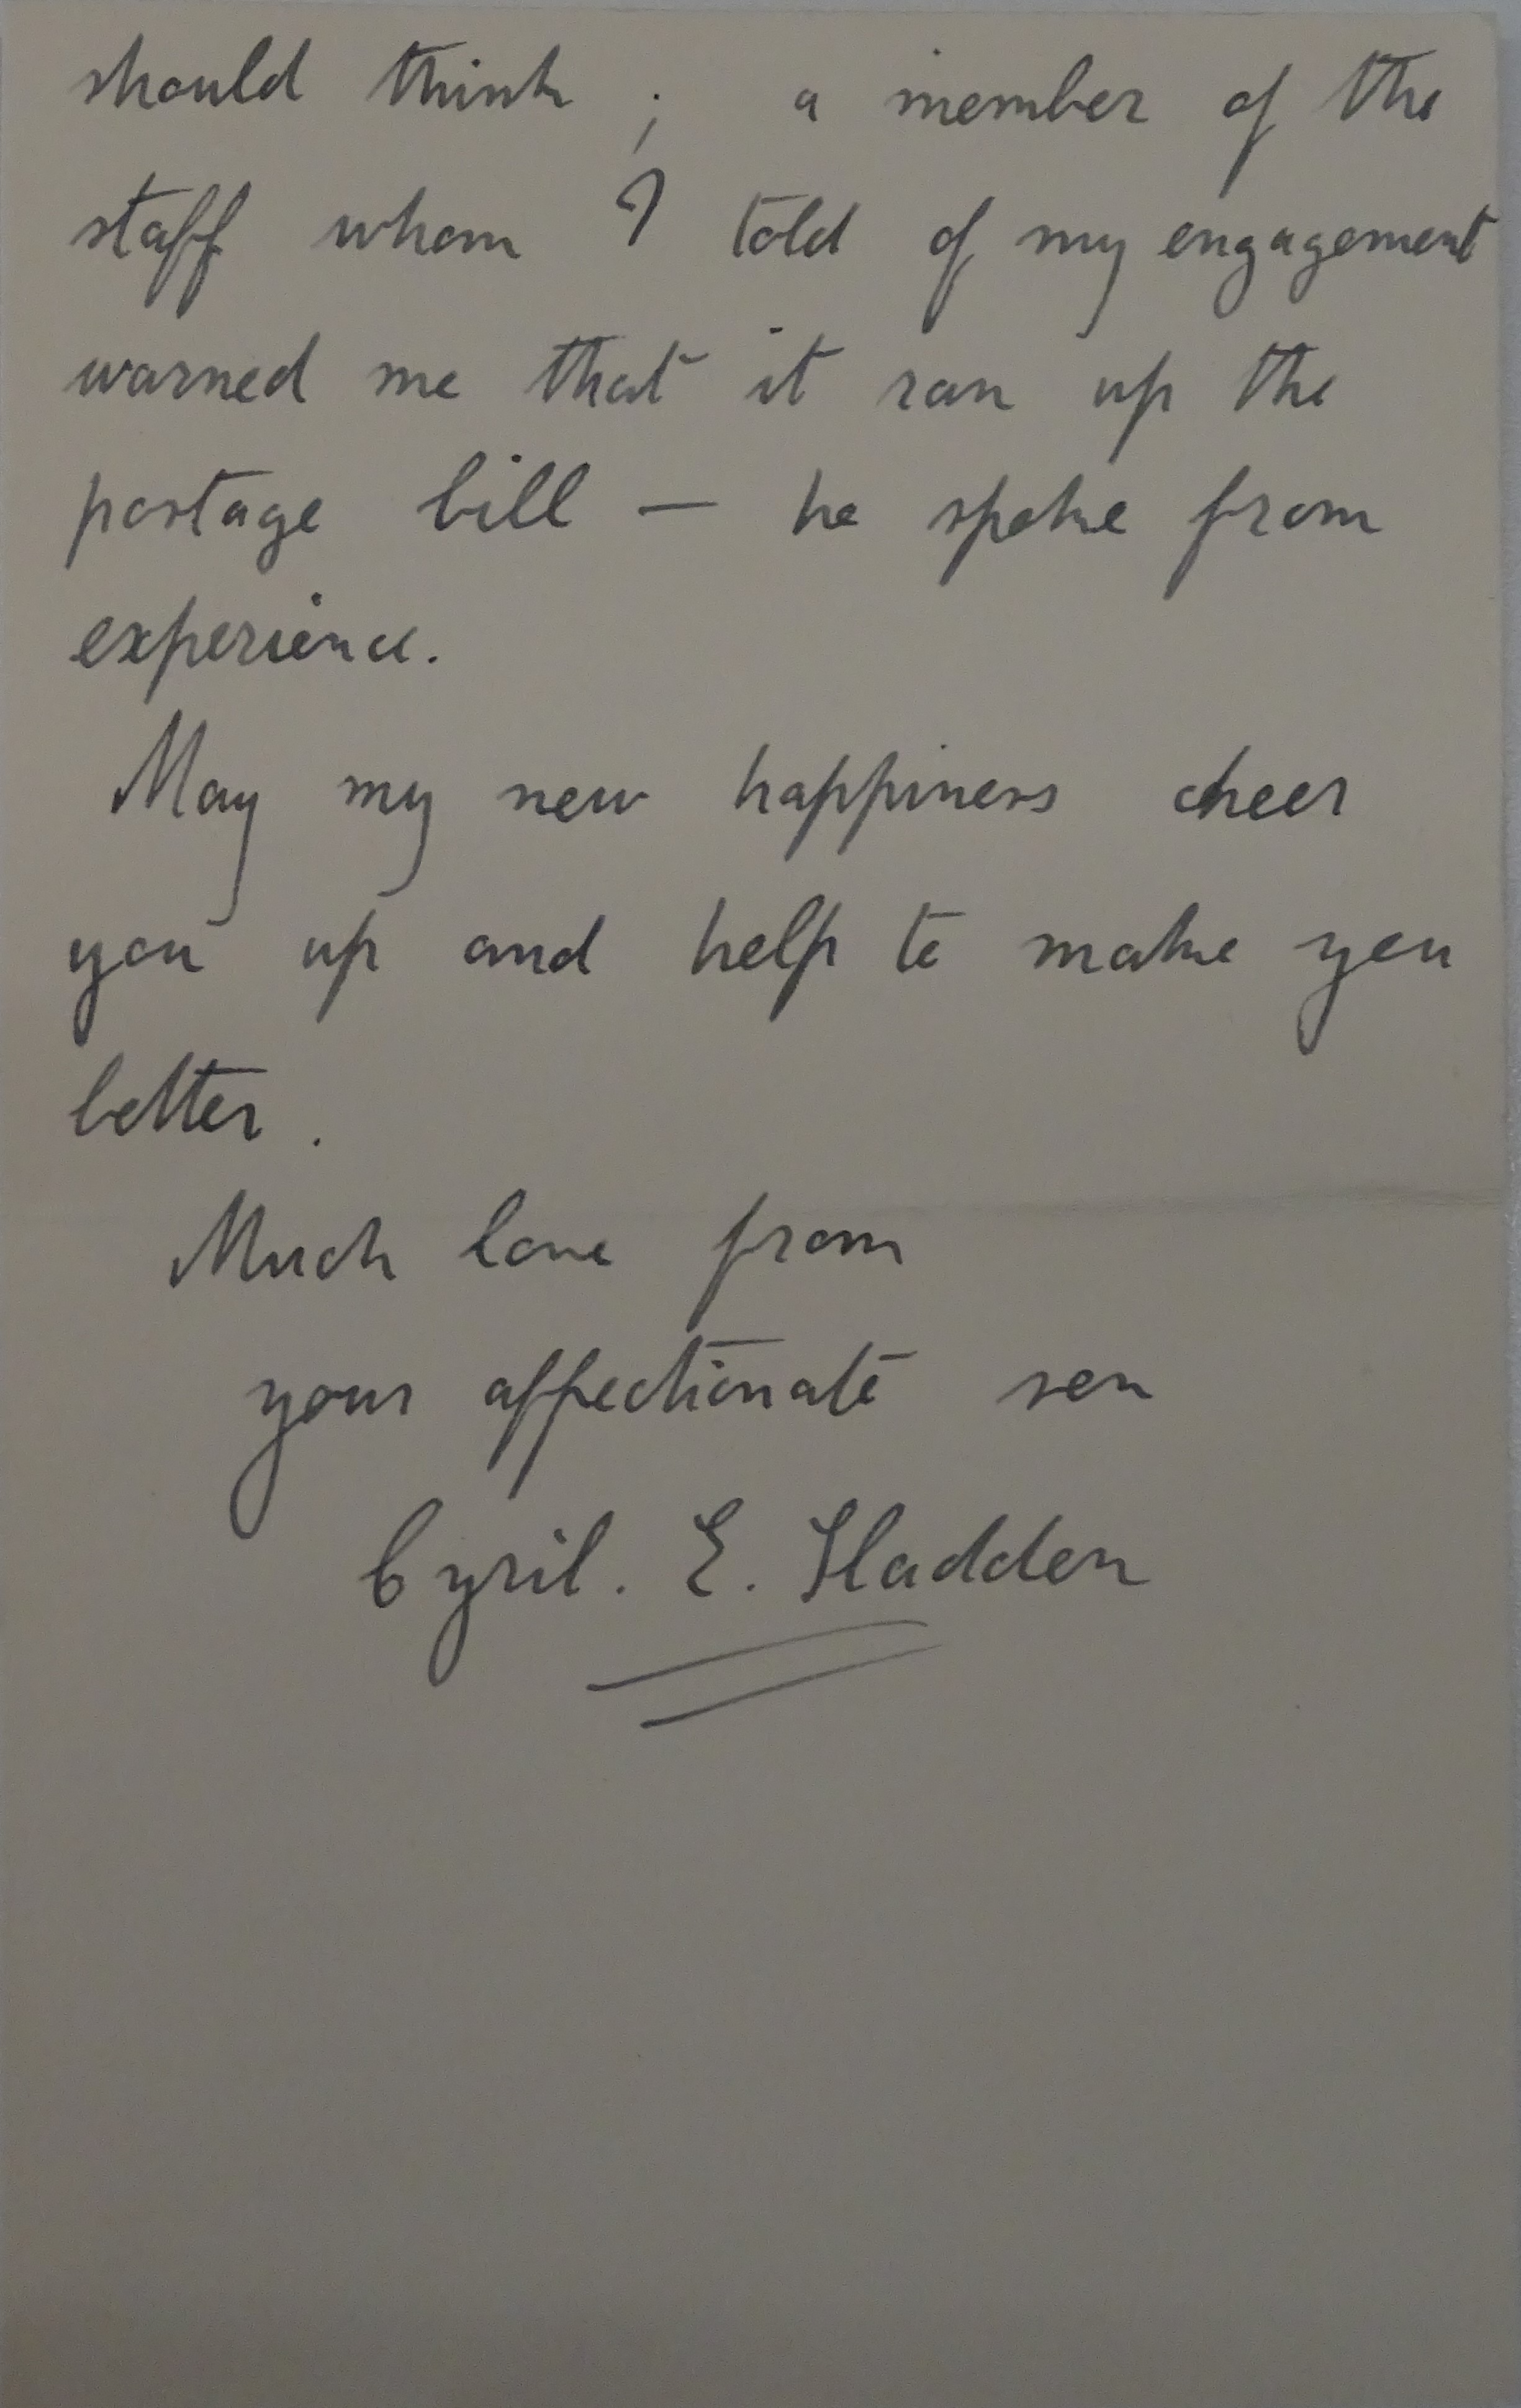 should think ; a member of the
staff whom I told of my engagement
warned me that it ran up the
postage bill — he spoke from
experience.
May my new happiness cheer
you up and help to make you
better .
Much love from
your affectionate son
Cyril. E. Sladden